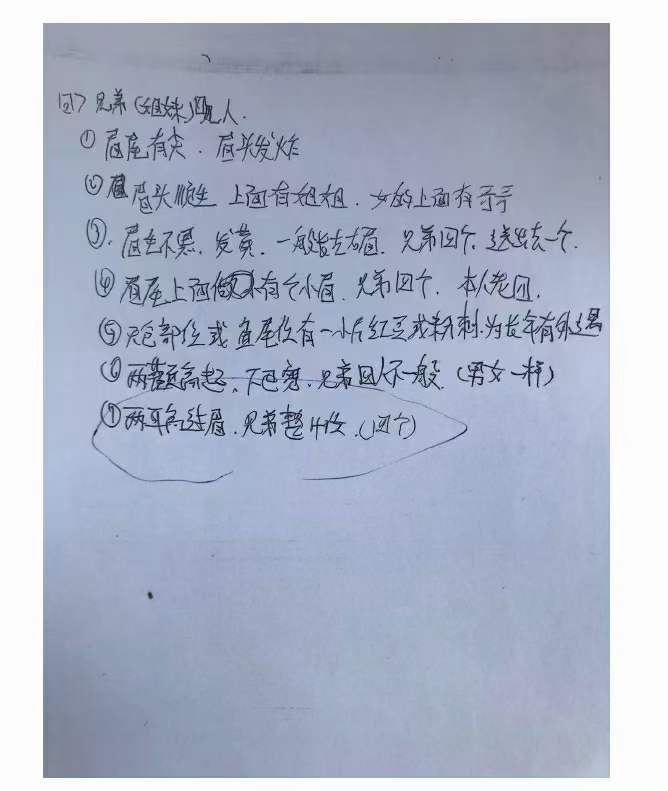 (四) 兄弟(姐妹)四人.
① 眉尾有尖. 眉头发炸
② 眉头顺生 上面有姐姐. 女的上面有哥哥
③. 眉毛不黑. 发黄. 一般指左右眉. 兄弟四个. 送出去一个.
④ 眉尾上面有个小眉. 兄弟四个. 本人老四.
⑤ 部位或鱼尾位有一小片红豆或粉刺.为长年有外遇
⑥ 两颧高起. 下巴窄. 兄弟四人不一般. (男女一样)
⑦ 两耳高过眉. 兄弟整4位. (四个)